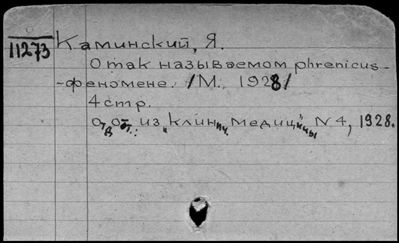 11273
Каминский, Я.
О так называемом phrenicus-
-феномене. /М., 1928/
4 стр.
Отд. от.: из "Клинич. медицины" N4, 1928.